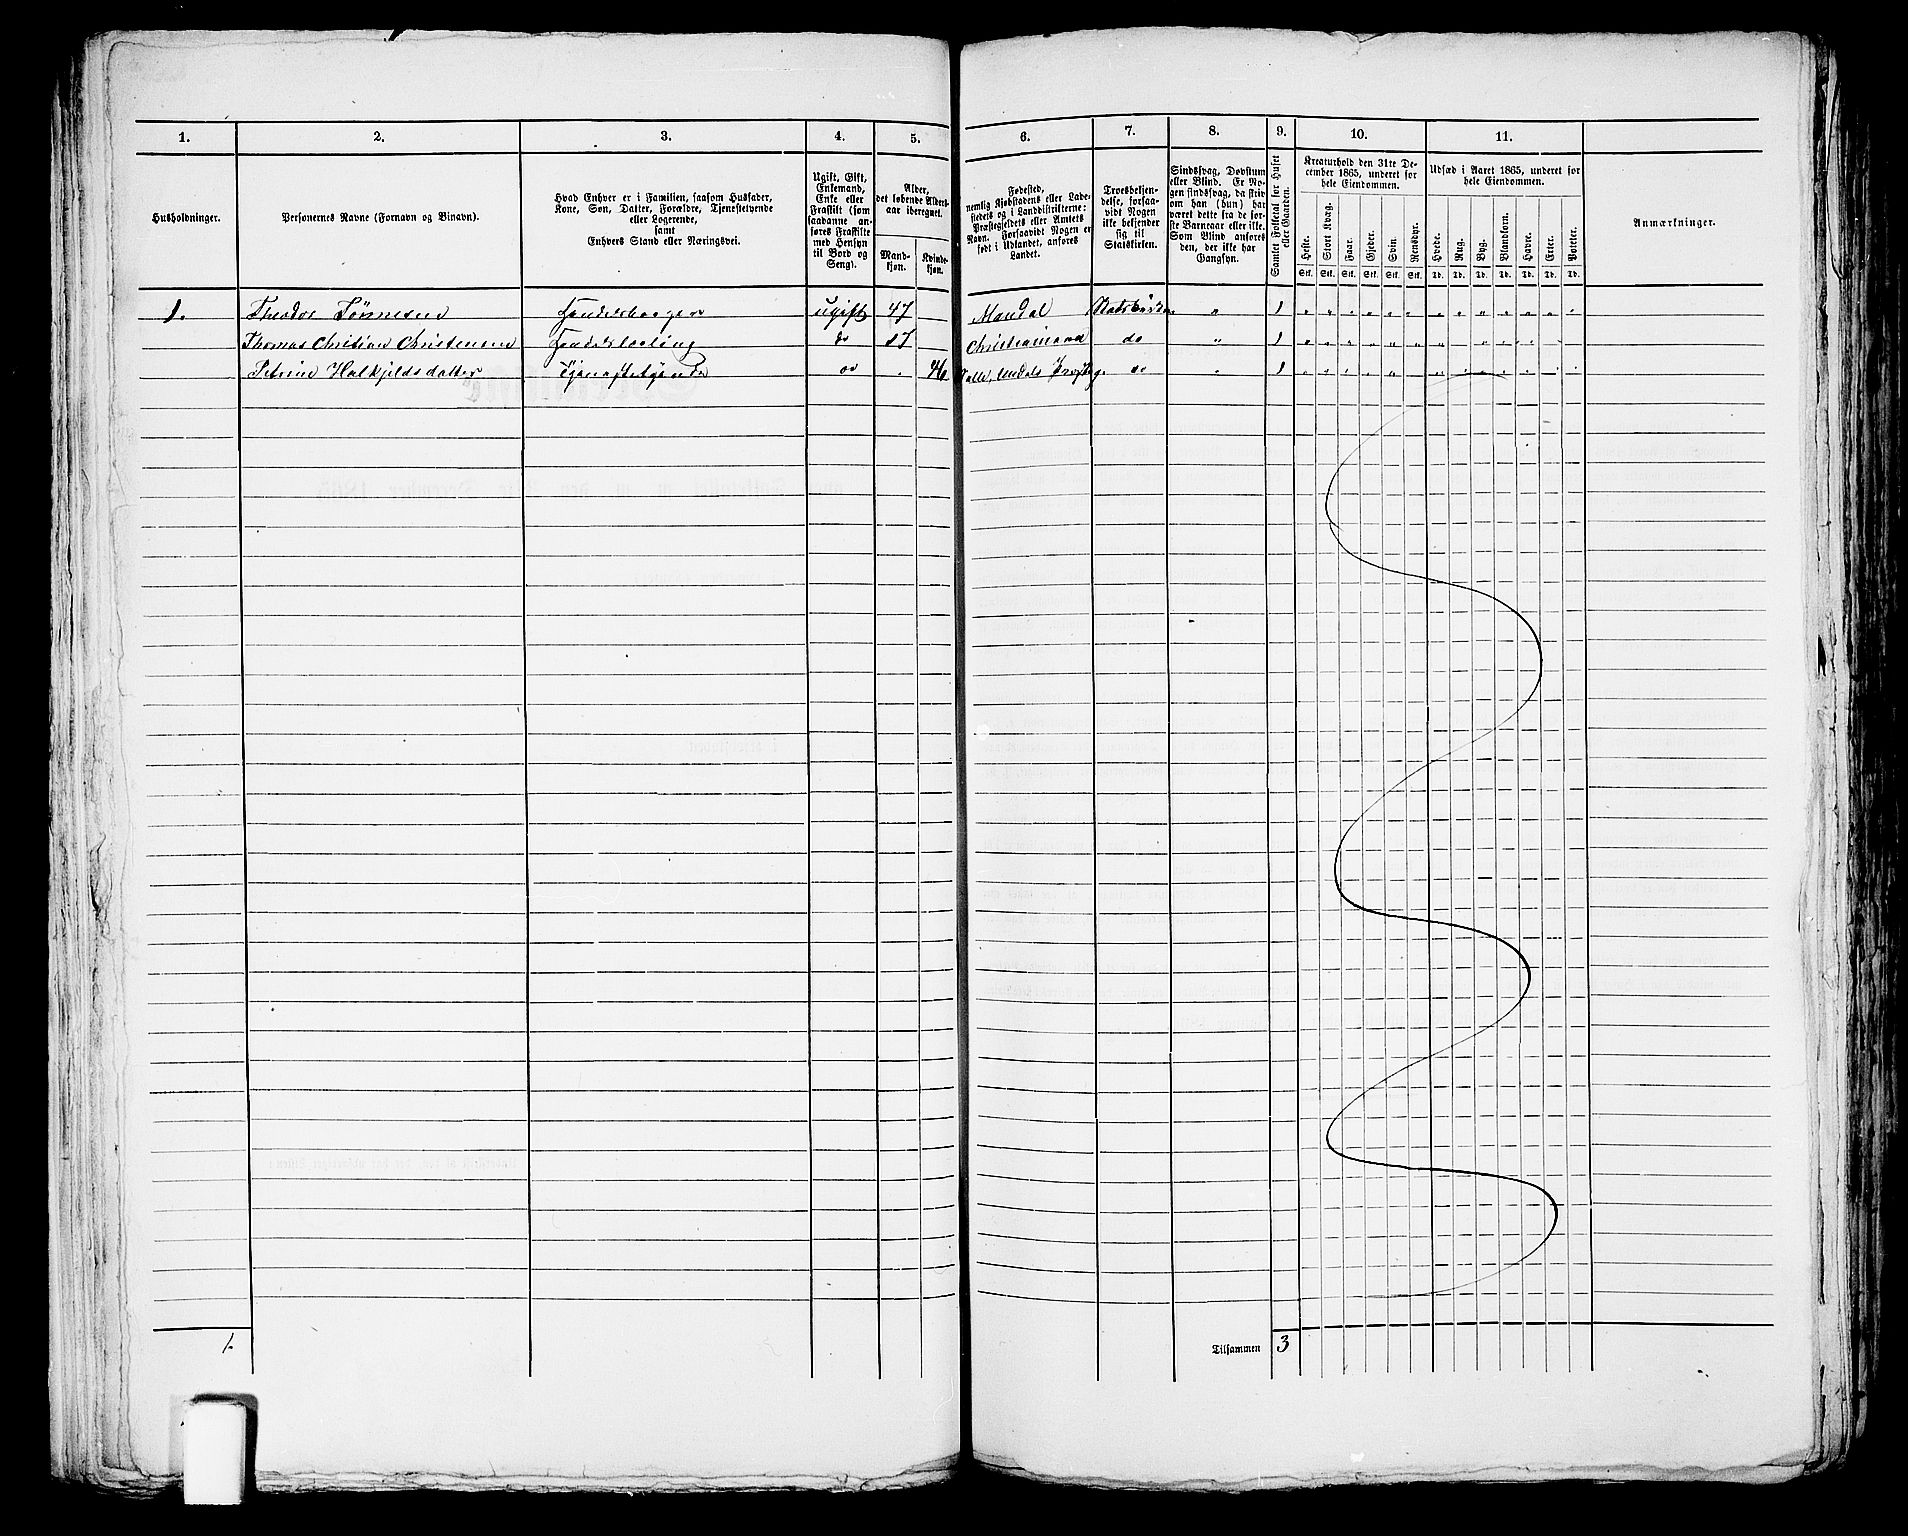 1. 2. 3. 4. 5. 6. 7. 8. 9. 10. 11.
Husholdninger.
Personernes Navne (Fornavn og Binavn).
Hvad Enhver er i Familien, saasom Husfader,
Kone, Søn, Datter, Forældre, Tjenestetyende
eller Logerende,
samt
Enhvers Stand eller Næringsvei.
Ugift, Gift,
Enkemand,
Enke eller
Fraskilt (som
saadanne an-
føres Fraskilte
med Hensyn
til Bord og
Seng).
Alder,
det løbende Alders-
aar iberegnet.
Mand-
kjøn.
Kvinde-
kjøn.
Fødested,
nemlig Kjøbstadens eller Lade-
stedets og i Landdistrikterne:
Præstegjeldets eller Amtets
Navn. Forsaavidt Nogen er
født i Udlandet, anføres
Landet.
Troesbekjen-
delse, forsaa-
vidt Nogen
ikke bekjender
sig til
Statskirken.
Sindssvag, Døvstum
eller Blind. Er No-
gen sindssvag, da skriv
om han (hun) har
været dette fra de før-
ste Barneaar eller ikke.
Som Blind anføres
den, der ikke har
Gangsyn.
Samlet Folketal for Huset
eller Gaarden.
Kreaturhold den 31te De-
cember 1865, underet for
hele Eiendommen.
Heste. Stort Kvæg. Faar. Gjeder. Svin. Rensdyr.
Stk. Stk. Stk. Stk. Stk. Stk.
Udsæd i Aaret 1865, underet for
hele Eiendommen.
Hvede. Rug. Byg. Blandkorn. Havre. Erter. Poteter.
Td. Td. Td. Td. Td. Td. Td.
Anmærkninger.
1. Theodor Tønnesen ugift 47 Mandal " 1
Thomas Christian Christensen do 17 Christiansand do " 1
Petrine Halkjeldsdatter do 46 do " 1
1.
Tilsammen 3